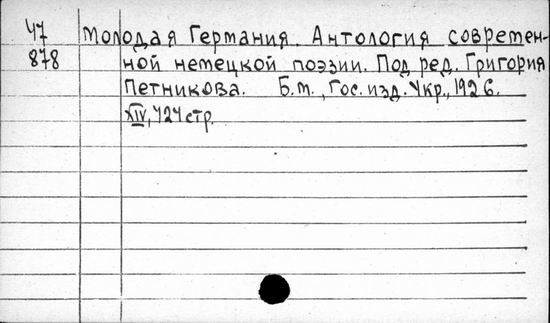 47 Молодая Германия. Антология современ-
878 ной немецкой поэзии. Под ред. Григория
Петникова. Б.м., Гос. изд. Укр., 1926.
XIV, 424 стр.